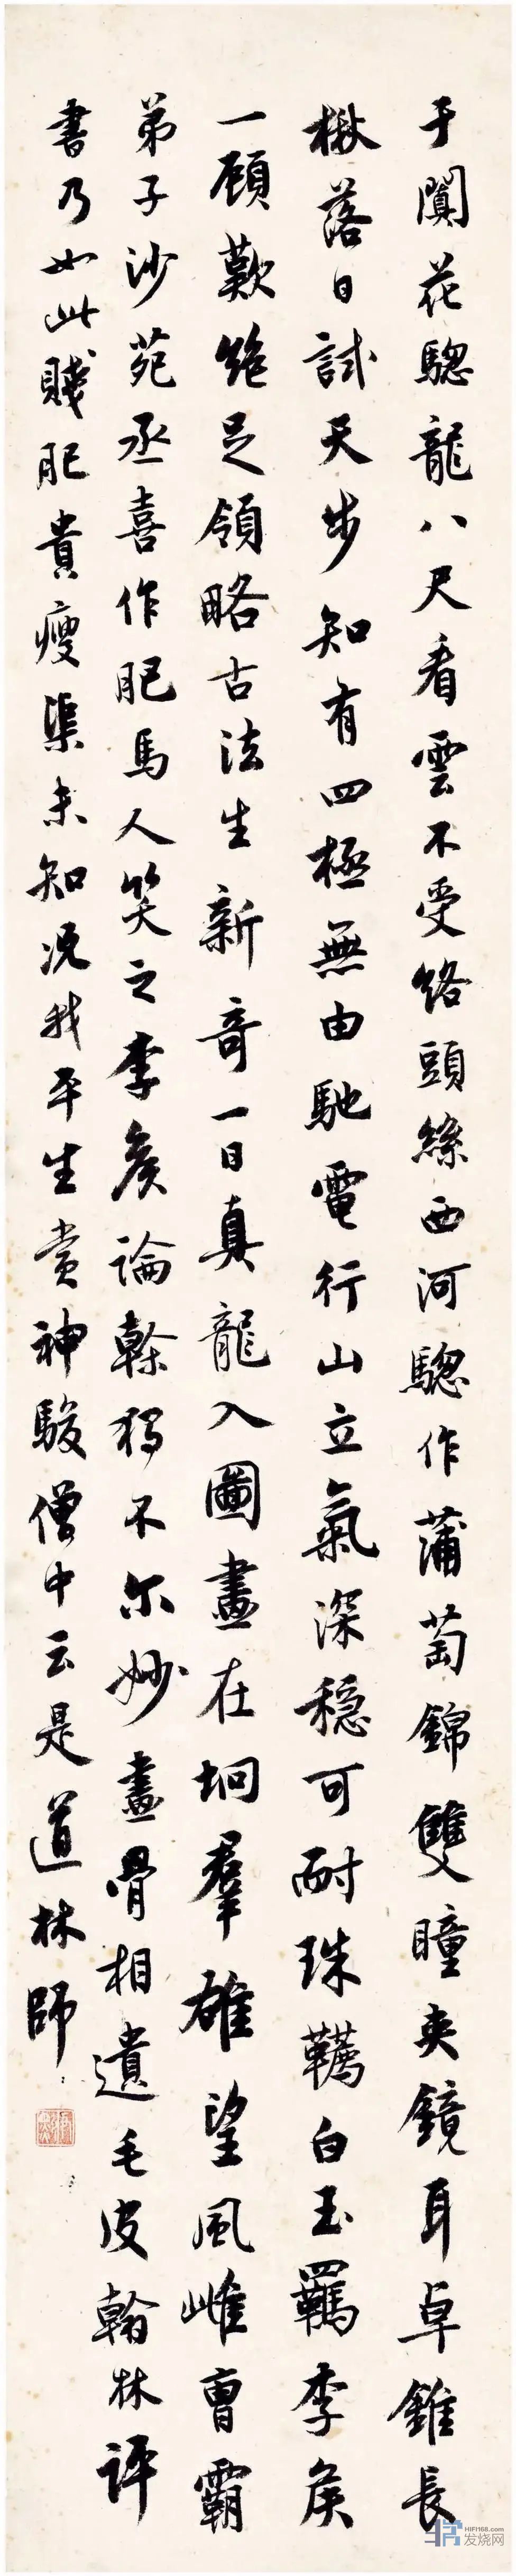 于闐花驄龍八尺看雲不受絡頭絲西河驄作蒲萄錦雙瞳夾鏡耳卓錐長
楸落日試天步知有四極無由馳電行山立氣深穩可耐珠韉白玉羈李侯
一顧歎絕足領略古法生新奇一日真龍入圖畫在坰羣雄望風雌曹霸
弟子沙苑丞喜作肥馬人笑之李侯論幹獨不尔妙畫骨相遺毛皮翰林評
書乃如此賤肥貴瘦渠未知況我平生賞神駿僧中云是道林師
HIFI168.com
发烧网